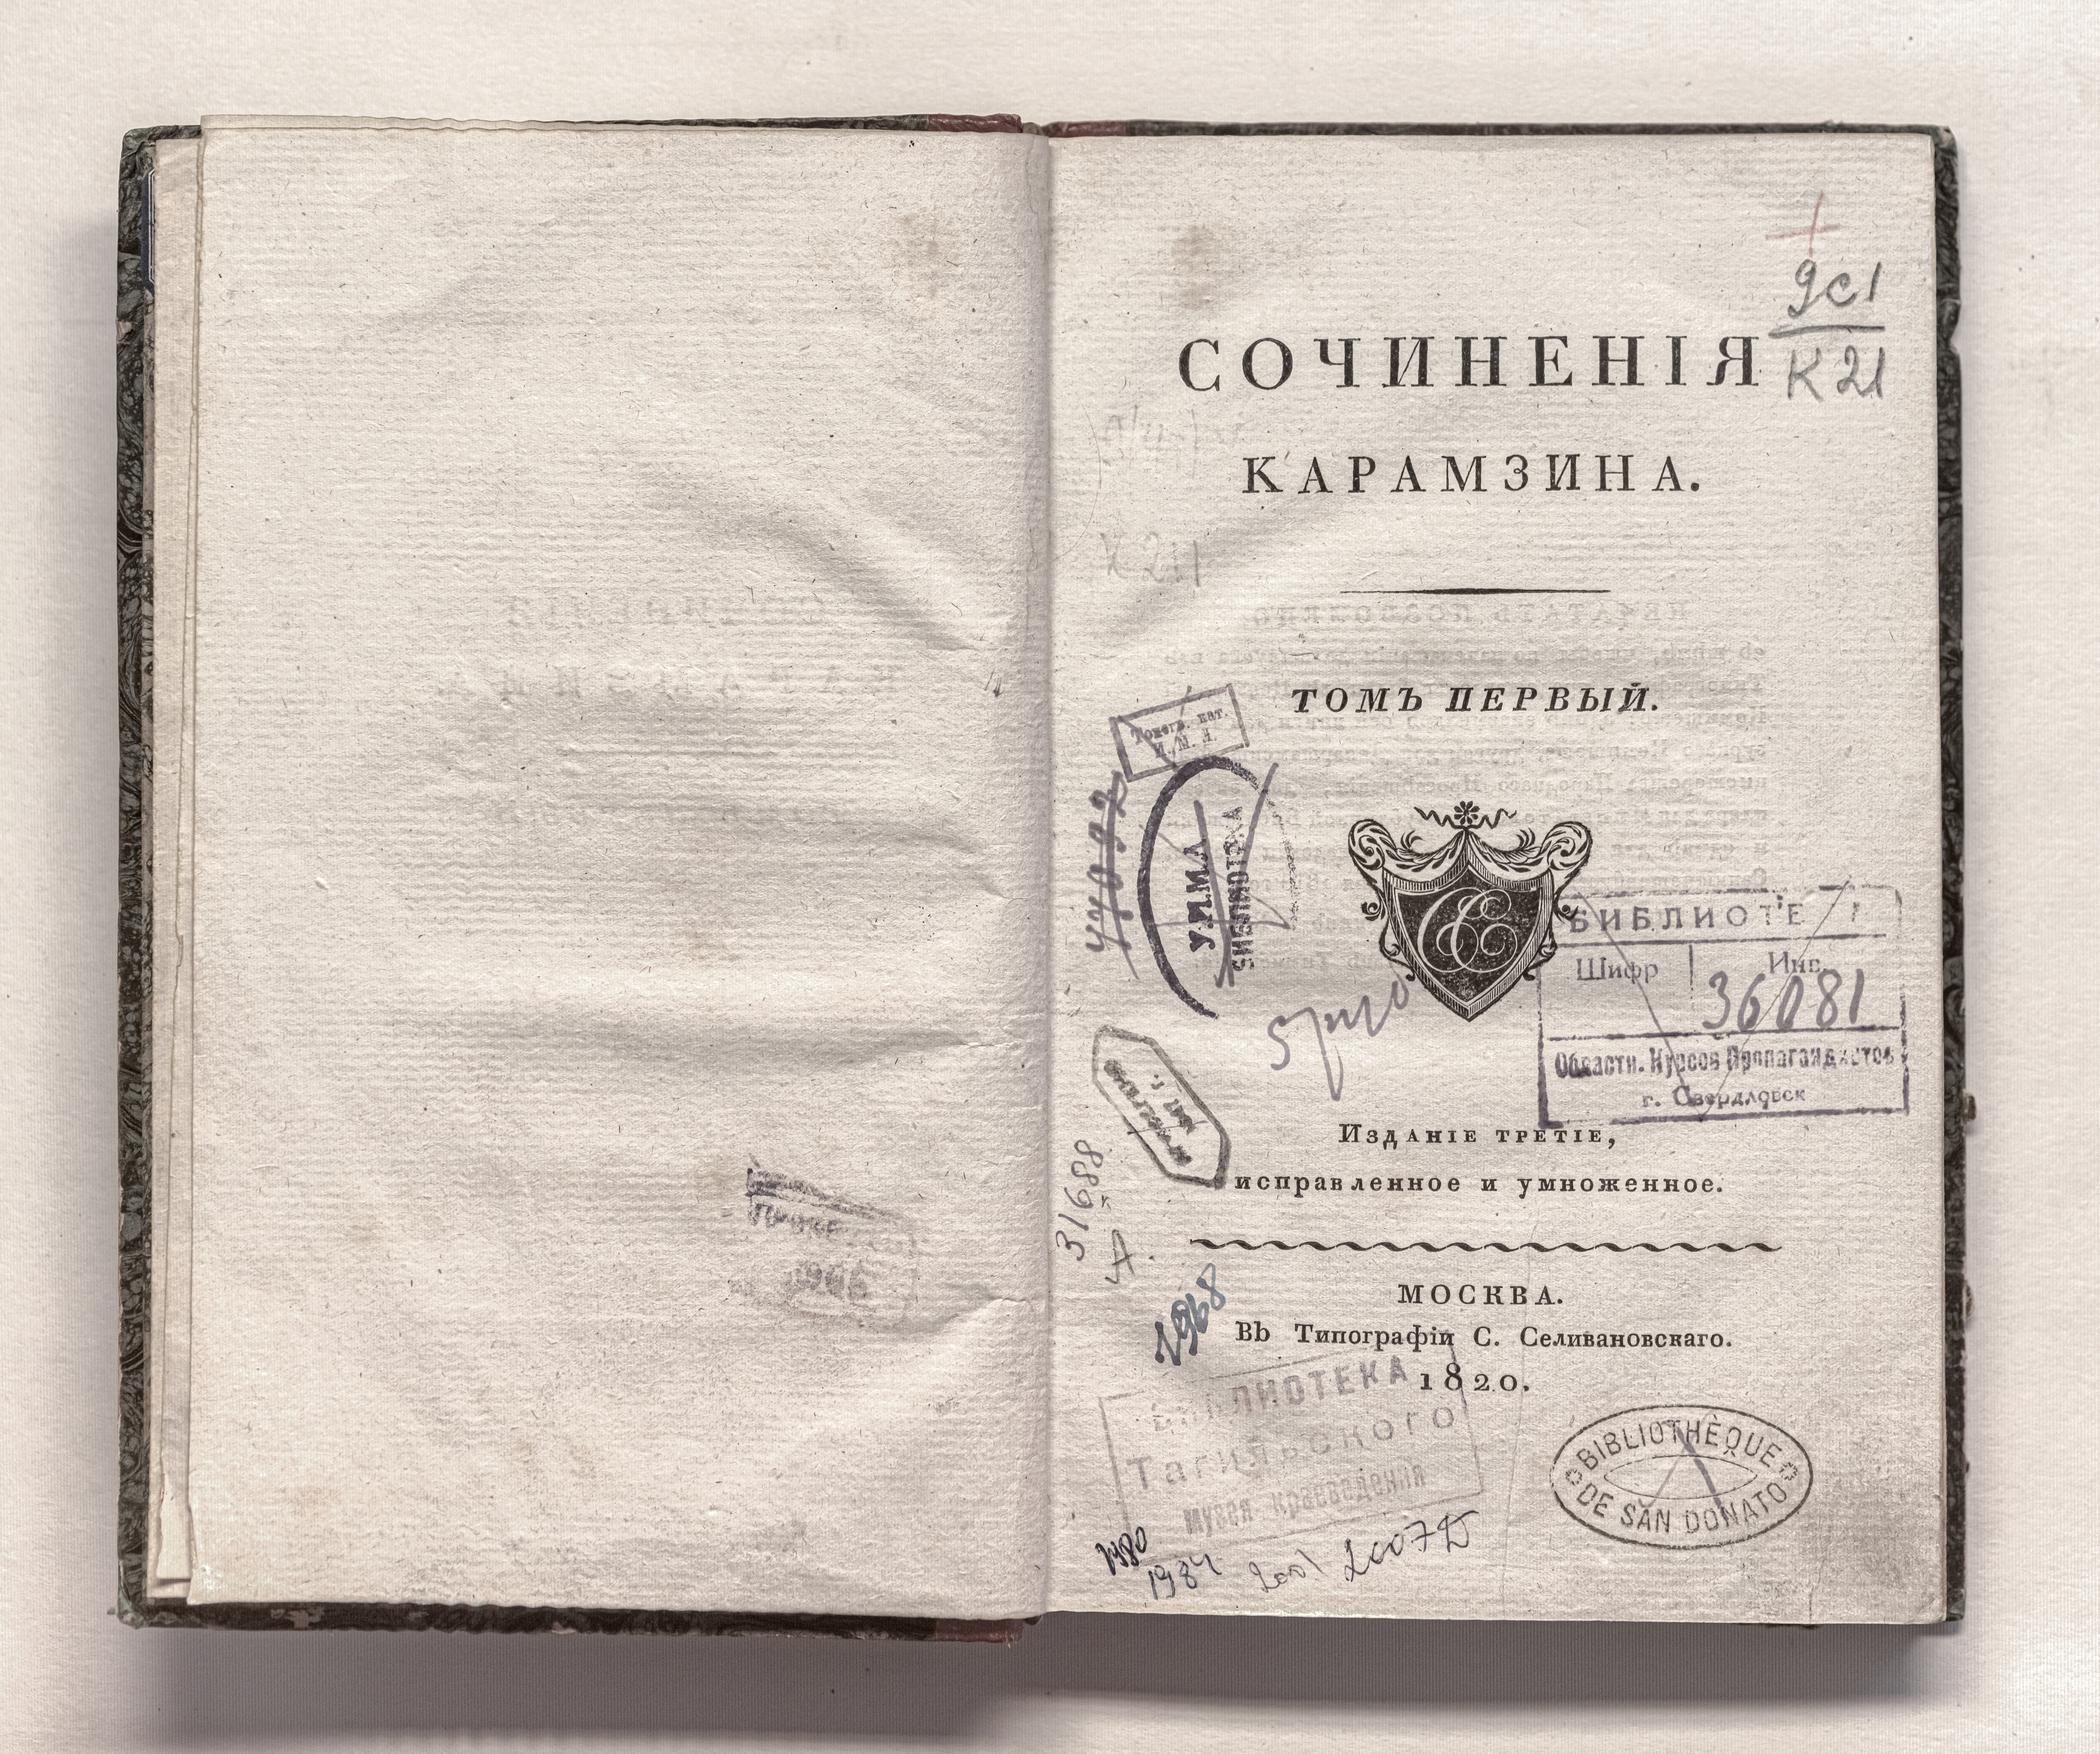 9с1
К21
СОЧИНЕНІЯ
КАРАМЗИНА.
ТОМЪ ПЕРВЫЙ.
Топогр. кат.
И. М. Л.
У.И.М.Л.
БИБЛИОТЕКА
БИБЛИОТЕ
Шифр Инв.
36081
Областн. Курсов Пропагандистов
г. Свердловск
Изданіе третіе,
исправленное и умноженное.
31688
А.
МОСКВА.
Въ Типографіи С. Селивановскаго.
1820.
1968
БИБЛИОТЕКА
Тагильского
музея краеведения
BIBLIOTHÈQUE
DE SAN DONATO
1980
1984 2001 2007